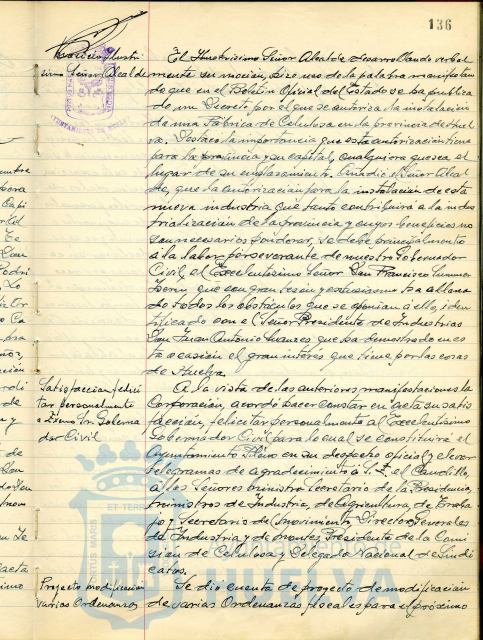 136
Moción Ilustri
simo Señor Alcalde
El Ilustrisimo Señor Alcalde desarrollando verbal
mente su moción, hizo uso de la palabra manifestan
do que en el Boletin Oficial del Estado se ha publica
do un Decreto por el que se autoriza la instalación
de una Fábrica de Celulosa en la provincia de Huel
va. Destacó la importancia que esta autorización tiene
para la provincia y su capital, cualquiera que sea el
lugar de su emplazamiento. Añadió el Señor Alcal
de, que la autorización para la instalación de esta
nueva industria que tanto contribuirá a la indus
trialización de la provincia y cuyos beneficios no
son necesarios ponderar, se debe principalmente
a la labor perseverante de nuestro Gobernador
Civil, el Excelentisimo Señor Don Francisco Summers
Isern, que con gran tesón y entusiasmo ha allana
do todos los obstáculos que se oponian a ello, iden
tificado con el Señor Presidente de Industrias
Don Juan Antonio Suanzes que ha demostrado en es
ta ocasión el gran interés que tiene por las cosas
de Huelva.
Satisfacción felici
tar personalmente
a Excmo. Sr. Goberna
dor Civil
A la vista de las anteriores manifestaciones la
Corporación, acordó hacer constar en acta su satis
facción, felicitar personalmente al Excelentisimo
Gobernador Civil para lo cual se constituirá el
Ayuntamiento Pleno en su despacho oficial y elevar
telegramas de agradecimiento a S. E. el Caudillo,
a los Señores Ministro Secretario de la Presidencia,
Ministros de Industria, de Agricultura, de Traba
jo y Secretario del Movimiento, Directores Generales
de Industria y de Montes, Presidente de la Comi
sión de Celulosa y Delegado Nacional de Sindi
catos.
Proyecto modificación
varias Ordenanzas
Se dió cuenta de proyecto de modificación
de varias Ordenanzas fiscales para el próximo
HUELVA